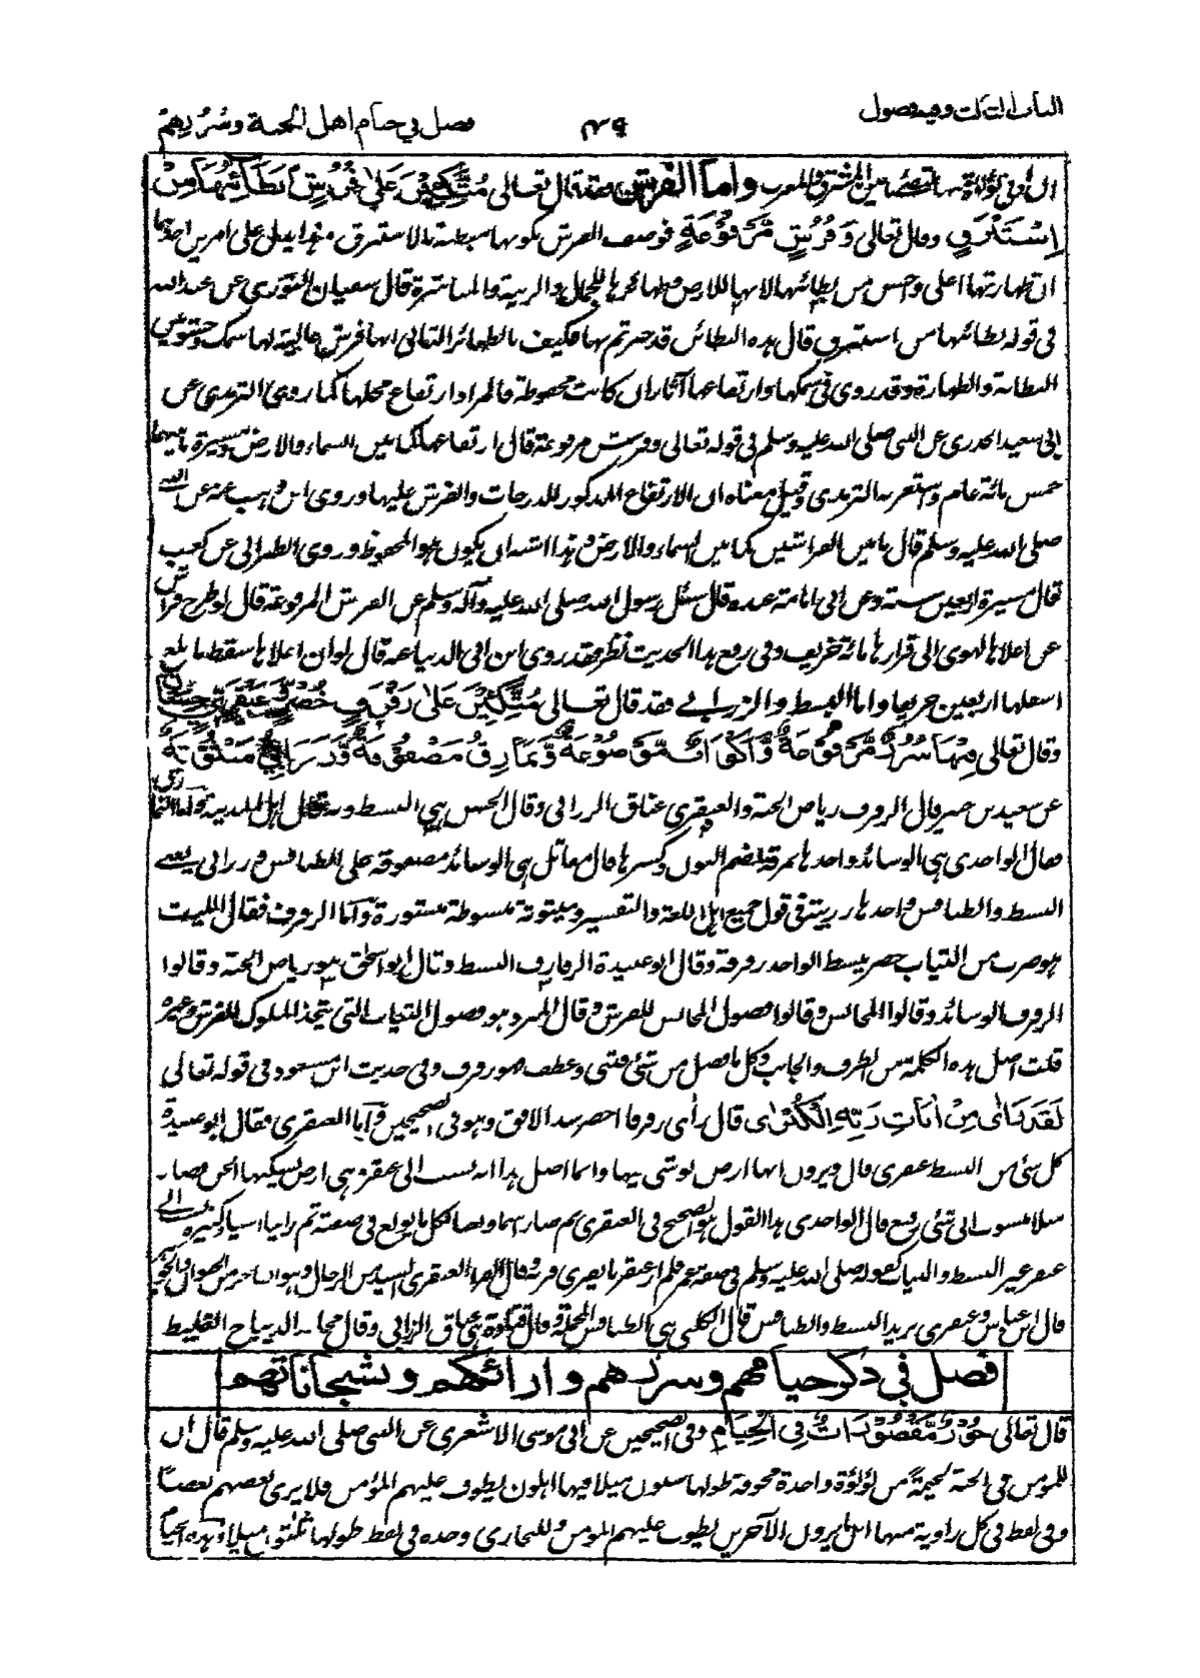 الباب الثالث وفيه فصول
فصل في خيام اهل الجنة وسررهم
ان ادنى لؤلؤة منها لتضئ ما بين المشرق والمغرب واما الفرش فقد قال تعالى مُتَّكِئِيْنَ عَلىٰ فُرُشٍ بَطَائِنُهَا مِنْ
اِسْتَبْرَقٍ وقال تعالى وَفُرُشٍ مَّرْفُوْعَةٍ فوصف الفرش بكونها مبطنة بالاستبرق وهذا يدل على امرين احدهما
ان ظهارتها اعلى واحسن من بطائنها لانها للارض وظهائرها للجمال والزينة والمباشرة قال سفيان الثوري عن عبدالله
في قوله بطائنها من استبرق قال هذه البطائن قد خبرتم بها فكيف بالظهائر الثاني انها فرش عالية لها سمك وحشو بين
البطانة والظهارة وقد روى في سمكها وارتفاعها آثار ان كانت محفوظة فالمراد ارتفاع محلها كما روى الترمذي عن
ابي سعيد الخدري عن النبي صلى الله عليه وسلم في قوله تعالى وفرش مرفوعة قال ارتفاعها كما بين السماء والارض ومسيرة ما بينهما
خمس مائة عام واستغربه الترمذي وقيل معناه ان الارتفاع المذكور للدرجات والفرش عليها وروى ابن وهب عنه عن النبي
صلى الله عليه وسلم قال ما بين الفراشين كما بين السماء والارض وهذا اشبه ان يكون هو المحفوظ وروى الطبراني عن كعب
قال مسيرة اربعين سنة وعن ابي امامة عنده قال سئل رسول الله صلى الله عليه وآله وسلم عن الفرش المرفوعة قال لو طرح فراش
من اعلاها لهوى الى قرارها مائة خريف وفي رفع هذا الحديث نظر فقد روى ابن ابي الدنيا عنه قال لو ان اعلاها سقط ما بلغ
اسفلها اربعين خريفا واما البسط والزرابي فقد قال تعالى مُتَّكِئِيْنَ عَلىٰ رَفْرَفٍ خُضْرٍ وَّعَبْقَرِيٍّ حِسَانٍ
وقال تعالى فِيْهَا سُرُرٌ مَّرْفُوْعَةٌ وَّاَكْوَابٌ مَّوْضُوْعَةٌ وَّنَمَارِقُ مَصْفُوْفَةٌ وَّزَرَابِيُّ مَبْثُوْثَةٌ
عن سعيد بن جبير قال الرفرف رياض الجنة والعبقري عتاق الزرابي وقال الحسن هي البسط اهل المدينة
فقال الواحدي هي الوسائد واحدها نمرقة بضم النون وكسرها قال مقاتل هي الوسائد مصفوفة على الطنافس وزرابي يعني
البسط والطنافس واحدها زربية في قول جميع اهل اللغة والتفسير ومبثوثة مبسوطة منشورة واما الرفرف فقال الليث
هو ضرب من الثياب خضر يبسط الواحد رفرفة وقال ابو عبيدة الرفارف البسط وقال ابو اسحق هو رياض الجنة وقالوا
الرفرف الوسائد وقالوا المحابس وقالوا فضول المحابس للفرش وقال المبرد هو فضول الثياب التي يتخذ الملوك للفرش وغيره
قلت اصل هذه الكلمة من الطرف والجانب وكل ما فضل من شئ فثنى وعطف فهو رفرف وفي حديث ابن مسعود في قوله تعالى
لَقَدْ رَاٰى مِنْ اٰيَاتِ رَبِّهِ الْكُبْرٰى قال رأى رفرفا اخضر سد الافق وهو في الصحيحين واما العبقري فقال ابو عبيدة
كل شئ من البسط عبقري قال ويرون انها ارض توشى فيها وانما اصل هذا انه نسب الى عبقر وهي ارض يسكنها الجن فصار
مثلا لمنسوب الى شئ رفيع قال الواحدي هذا القول هو الصحيح في العبقري
عبقر غير البسط والثياب كقوله صلى الله عليه وسلم في صفة عمر فلم ار عبقريا يفري فريه وقال الفراء العبقري السيد من الرجال
قال ابن عباس وعبقري يريد البسط والطنافس قال الكلبي هي الطنافس المخملة وقال قتادة هي عتاق الزرابي وقال مجاهد الديباج الغليظ
فصل في ذكر خيامهم وسررهم وارائكهم وبشخاناتهم
قال تعالى حُوْرٌ مَّقْصُوْرَاتٌ فِى الْخِيَامِ وفي الصحيحين عن ابي موسى الاشعري عن النبي صلى الله عليه وسلم قال ان
للمؤمن في الجنة لخيمة من لؤلؤة واحدة مجوفة طولها ستون ميلا فيها اهلون يطوف عليهم المؤمن فلا يرى بعضهم بعضا
وفي لفظ في كل زاوية منها اهل ما يرون الآخرين يطوف عليهم المؤمن وللبخاري وحده في لفظ طولها ثلثون ميلا وهذه الخيام